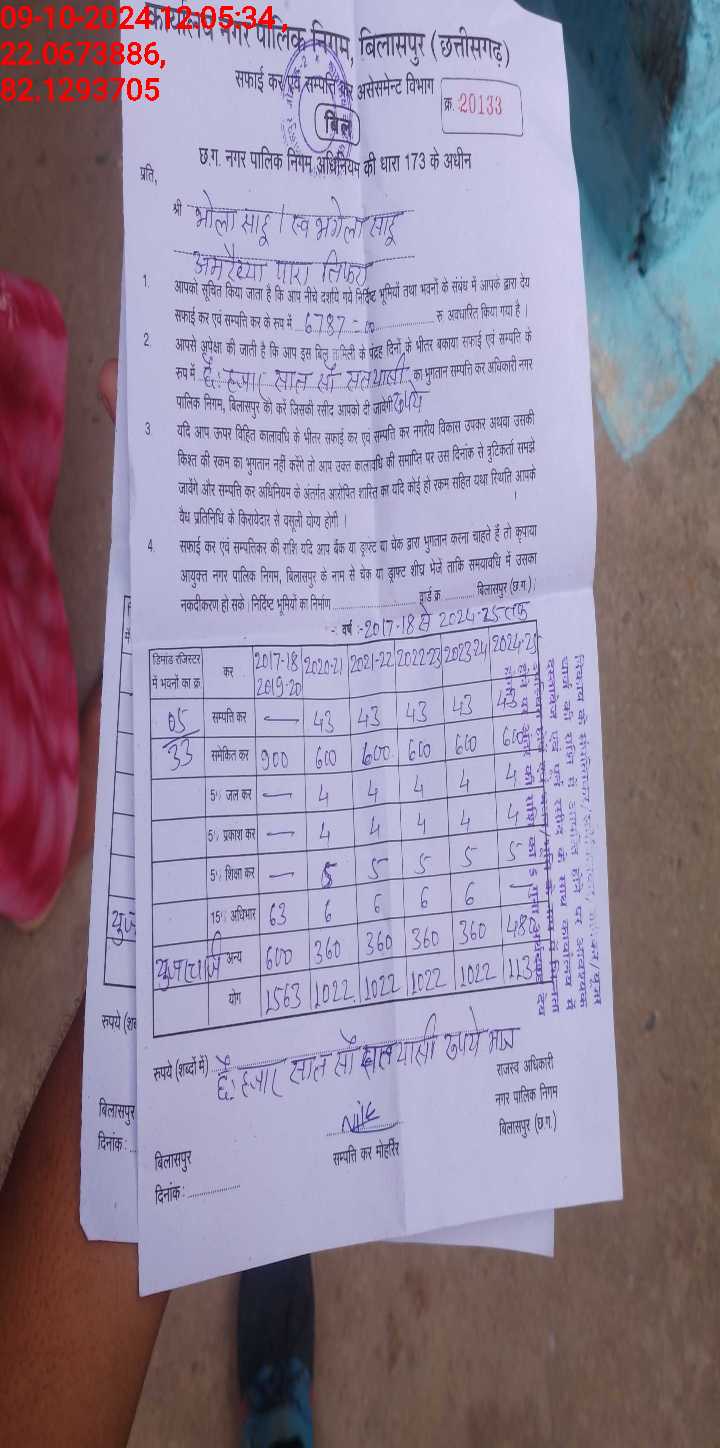 09-10-2024 12:05:34,
22.0673886,
82.1293705
नगर पालिक निगम, बिलासपुर (छत्तीसगढ़)
सफाई कर एवं सम्पत्ति कर असेसमेन्ट विभाग
क्र. 20133
बिल
छ.ग. नगर पालिक निगम अधिनियम की धारा 173 के अधीन
प्रति,
श्री भोला साहू / स्व भगेला साहू
तिफरा
1. आपको सूचित किया जाता है कि आप नीचे दर्शाये गये निर्दिष्ट भूमियों तथा भवनों के संबंध में आपके द्वारा देय
सफाई कर एवं सम्पत्ति कर के रूप में 6787 = 00 रु अवधारित किया गया है।
2. आपसे अपेक्षा की जाती है कि आप इस बिल मिली के पंद्रह दिनों के भीतर बकाया सफाई एवं सम्पत्ति के
रूप में छै: हजार सात सौ सतयासी का भुगतान सम्पत्ति कर अधिकारी नगर
पालिक निगम, बिलासपुर को करें जिसकी रसीद आपको दी जावेगी रूपये
3. यदि आप ऊपर विहित कालावधि के भीतर सफाई कर एवं सम्पत्ति कर नगरीय विकास उपकर अथवा उसकी
किश्त की रकम का भुगतान नहीं करेंगे तो आप उक्त कालावधि की समाप्ति पर उस दिनांक से त्रुटिकर्ता समझे
जावेंगे और सम्पत्ति कर अधिनियम के अंतर्गत आरोपित शास्ति का यदि कोई हो रकम सहित यथा स्थिति आपके
वैध प्रतिनिधि के किरायेदार से वसूली योग्य होगी।
4. सफाई कर एवं सम्पत्तिकर की राशि यदि आप बैंक या ड्राफ्ट या चेक द्वारा भुगतान करना चाहते हैं तो कृपाया
आयुक्त नगर पालिक निगम, बिलासपुर के नाम से चेक या ड्राफ्ट शीघ्र भेजें ताकि समयावधि में उसका
नकदीकरण हो सके। निर्दिष्ट भूमियों का निर्माण ........ वार्ड क्र ........ बिलासपुर (छ.ग.);
वर्ष :- 2017-18 से 2024-25 तक
डिमांड रजिस्टर में भवनों का क्र. कर 2017-18 2019-20 2020-21 2021-22 2022-23 2023-24 2024-25
05 सम्पत्ति कर — 43 43 43 43 43
33 समेकित कर 900 600 600 600 600 600
5% जल कर — 4 4 4 4 4
5% प्रकाश कर — 4 4 4 4 4
5% शिक्षा कर — 5 5 5 5 5
15% अधिभार 63 6 6 6 6 —
युजर चार्ज अन्य 600 360 360 360 360 480
योग 1563 1022 1022 1022 1022 113
रूपये (शब्दों में) छै: हजार सात सौ सतयासी रूपये मात्र
राजस्व अधिकारी
नगर पालिक निगम
बिलासपुर (छ.ग.)
सम्पत्ति कर मोहर्रिर
बिलासपुर
दिनांक: ........
रूपये (श
बिलासपुर
दिनांक: